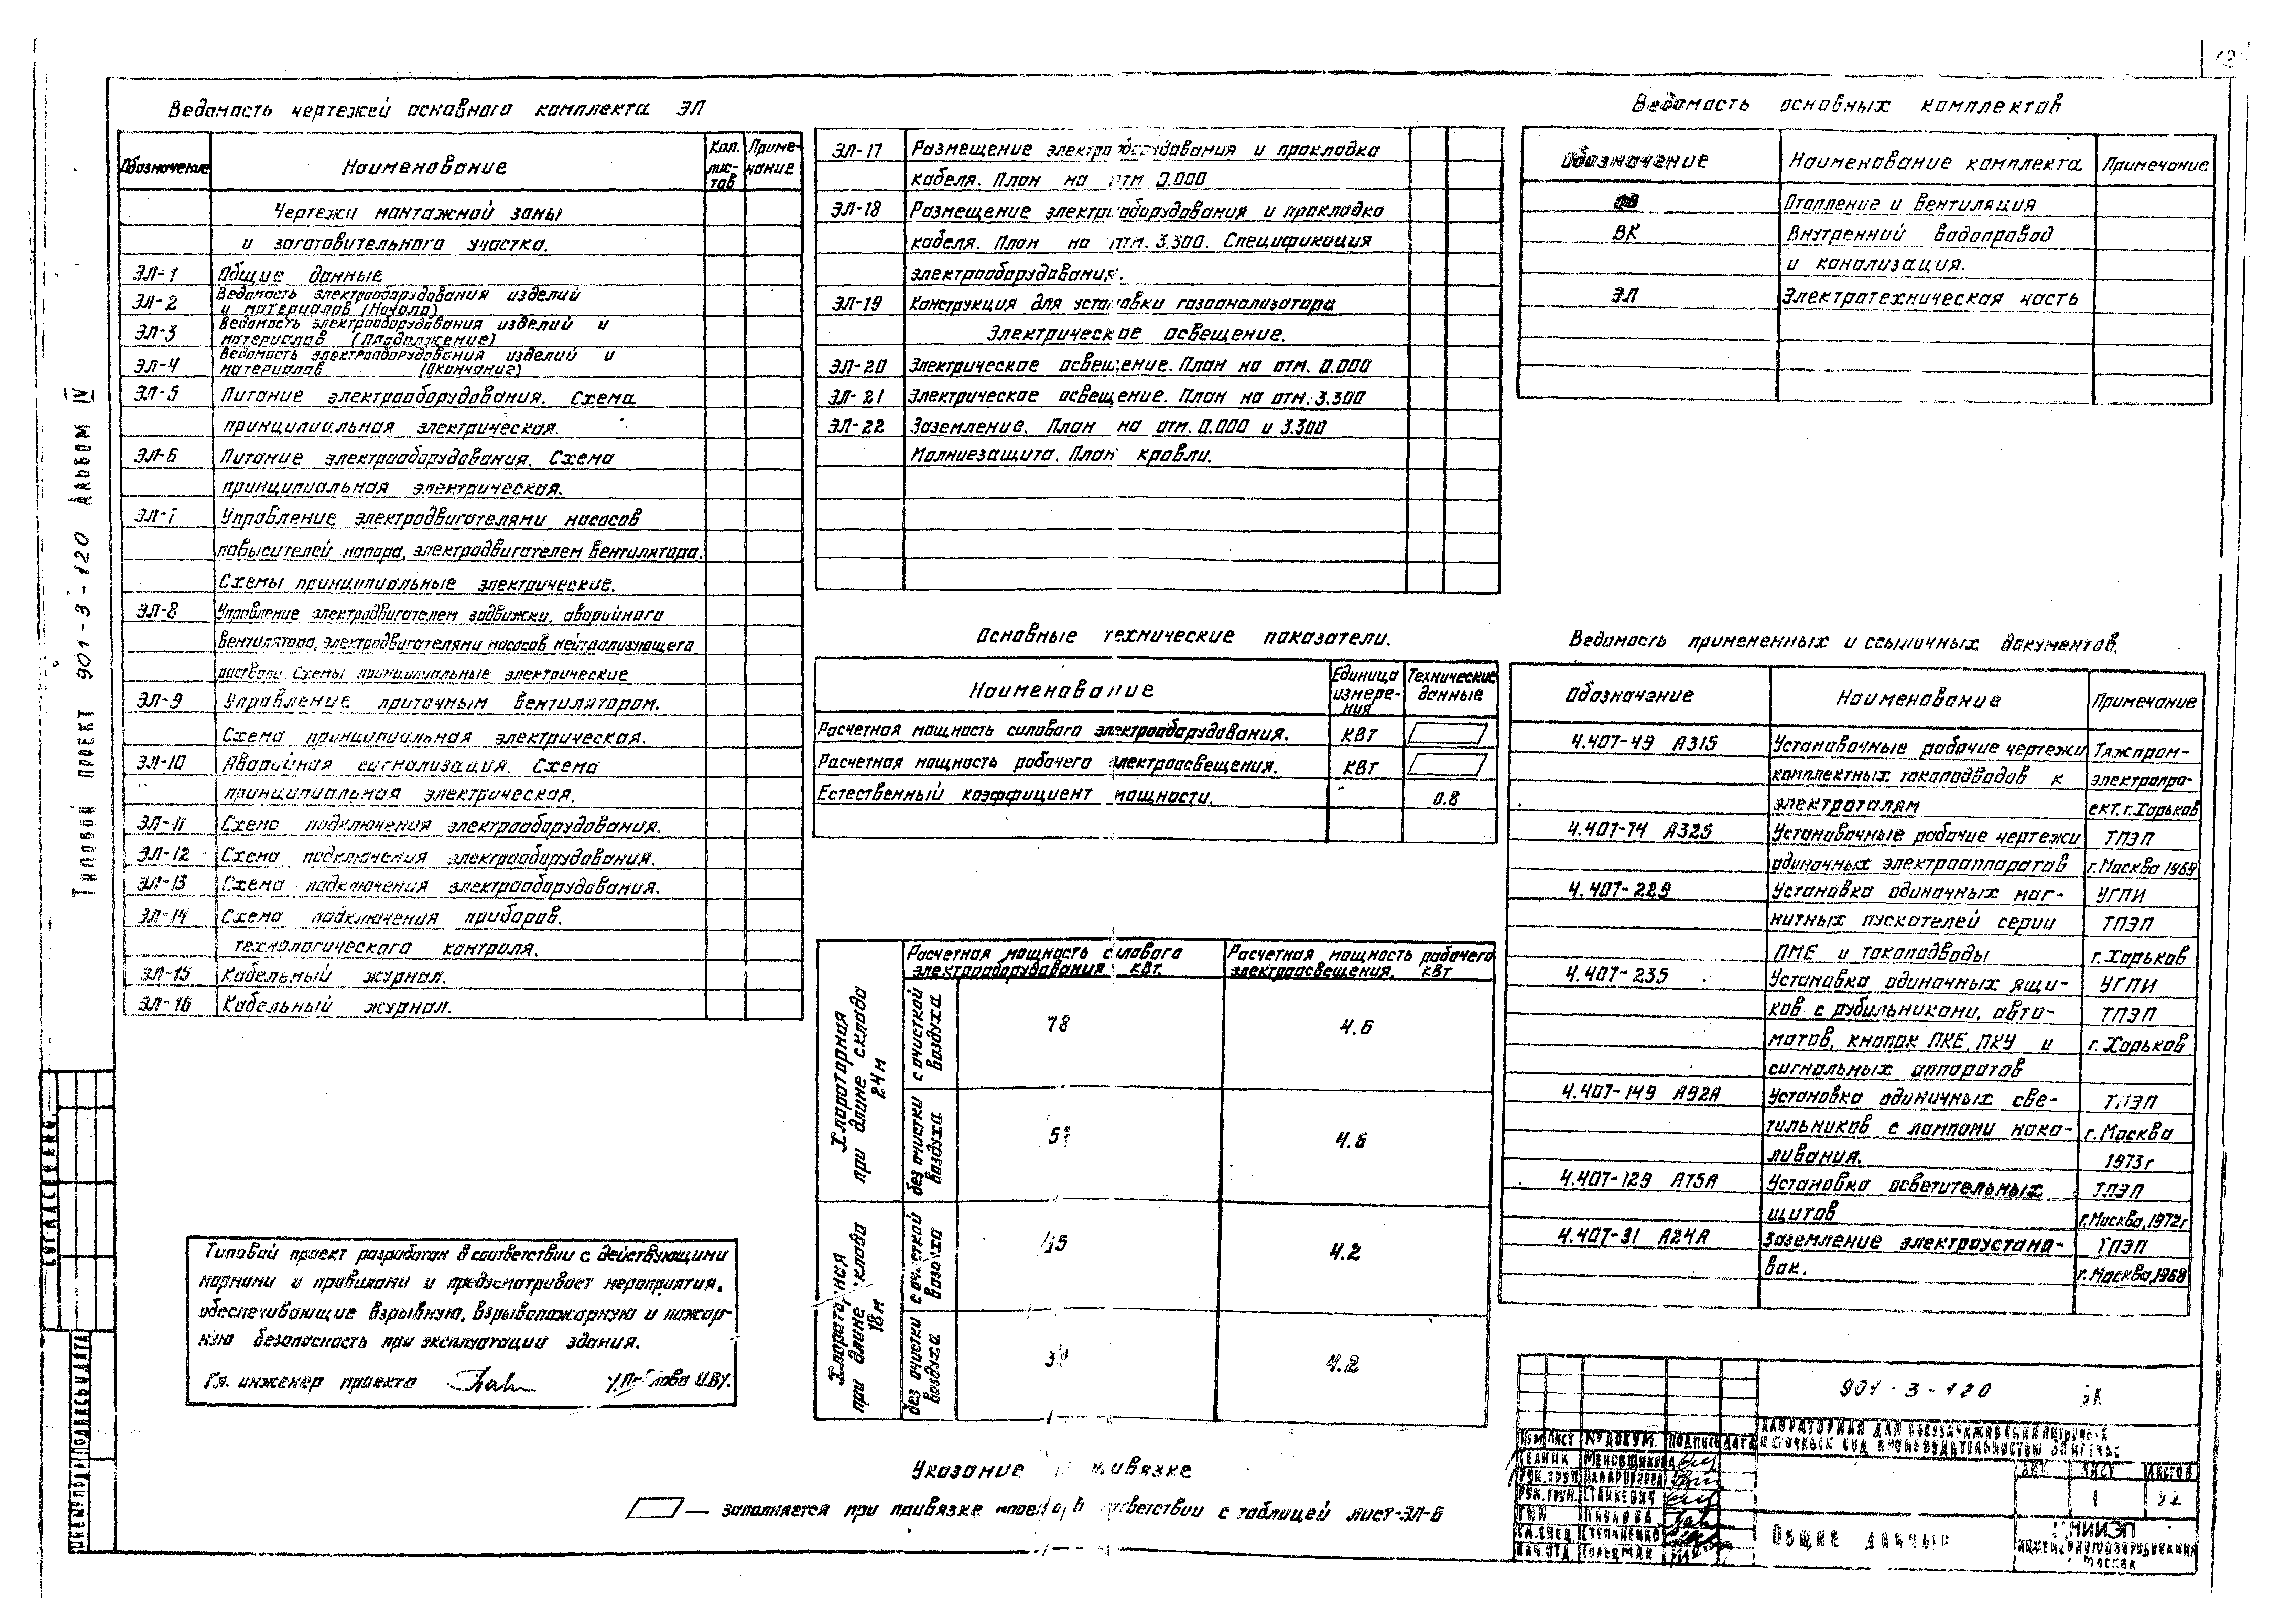 Ведомость чертежей основного комплекта ЭЛ
Обозначение Наименование Кол. лис-тов Приме-чание
Чертежи монтажной зоны
и заготовительного участка.
ЭЛ-1 Общие данные
ЭЛ-2 Ведомость электрооборудования изделий
и материалов (Начало)
ЭЛ-3 Ведомость электрооборудования изделий и
материалов (Продолжение)
ЭЛ-4 Ведомость электрооборудования изделий и
материалов (Окончание)
ЭЛ-5 Питание электрооборудования. Схема
принципиальная электрическая.
ЭЛ-6 Питание электрооборудования. Схема
принципиальная электрическая.
ЭЛ-7 Управление электродвигателями насосов
повысителей напора, электродвигателем вентилятора.
Схемы принципиальные электрические.
ЭЛ-8 Управление электродвигателем задвижки, аварийного
вентилятора, электродвигателями насосов нейтрализующего
раствора Схемы принципиальные электрические
ЭЛ-9 Управление приточным вентилятором.
Схема принципиальная электрическая.
ЭЛ-10 Аварийная сигнализация. Схема
принципиальная электрическая.
ЭЛ-11 Схема подключения электрооборудования.
ЭЛ-12 Схема подключения электрооборудования.
ЭЛ-13 Схема подключения электрооборудования.
ЭЛ-14 Схема подключения приборов.
технологического контроля.
ЭЛ-15 Кабельный журнал.
ЭЛ-16 Кабельный журнал.
ЭЛ-17 Размещение электрооборудования и прокладка
кабеля. План на отм 0.000
ЭЛ-18 Размещение электрооборудования и прокладка
кабеля. План на отм. 3.300. Спецификация
электрооборудования.
ЭЛ-19 Конструкция для установки газоанализатора
Электрическое освещение.
ЭЛ-20 Электрическое освещение. План на отм. 0.000
ЭЛ-21 Электрическое освещение. План на отм. 3.300
ЭЛ-22 Заземление. План на отм. 0.000 и 3.300
Молниезащита. План кровли.
Основные технические показатели.
Наименование Единица измере-ния Технические данные
Расчетная мощность силового электрооборудования. кВт
Расчетная мощность рабочего электроосвещения. кВт
Естественный коэффициент мощности. 0.8
Расчетная мощность силового
электрооборудования кВт.
Расчетная мощность рабочего
электроосвещения, кВт
Хлораторная
при длине склада
24м
с очисткой
воздуха
78 4.6
без очистки
воздуха
4.6
Хлораторная
при длине склада
18м
с очисткой
воздуха
4.2
без очистки
воздуха
4.2
Указание привязке
— заполняется при привязке проекта в соответствии с таблицей лист-ЭЛ-6
Ведомость основных комплектов
Обозначение Наименование комплекта Примечание
ОВ Отопление и вентиляция
ВК Внутренний водопровод
и канализация.
ЭЛ Электротехническая часть
Ведомость примененных и ссылочных документов.
Обозначение Наименование Примечание
4.407-49 А315 Установочные рабочие чертежи Тяжпром-
комплектных токоподводов к электропро-
электроталям ект. г. Харьков
4.407-74 А325 Установочные рабочие чертежи ТПЭП
одиночных электроаппаратов г. Москва 1969
4.407-229 Установка одиночных маг- УГПИ
нитных пускателей серии ТПЭП
ПМЕ и токоподводы г. Харьков
4.407-235 Установка одиночных ящи- УГПИ
ков с рубильниками, авто- ТПЭП
матов, кнопок ПКЕ, ПКУ и г. Харьков
сигнальных аппаратов
4.407-149 А92А Установка одиничных све- ТПЭП
тильников с лампами нака- г. Москва
ливания. 1973г
4.407-129 А75А Установка осветительных ТПЭП
щитов г. Москва, 1972г
4.407-31 А24А Заземление электроустано- ТПЭП
вок. г. Москва, 1968
Типовой проект разработан в соответствии с действующими
нормами и правилами и предусматривает мероприятия,
обеспечивающие взрывную, взрывопожарную и пожар-
ную безопасность при эксплуатации здания.
Гл. инженер проекта
Типовой проект 901-3-120 Альбом IV
Согласовано
901-3-120
Изм Лист № докум. Подпись Дата
Меновщикова
Рук. груп.
Рук. груп. Станкевич
ГИП
Гл. спец. Степаненко
Нач. отд. Гольцман
Лит. Лист Листов
1 22
Общие данные
ЦНИИЭП
инженерного оборудования
Москва